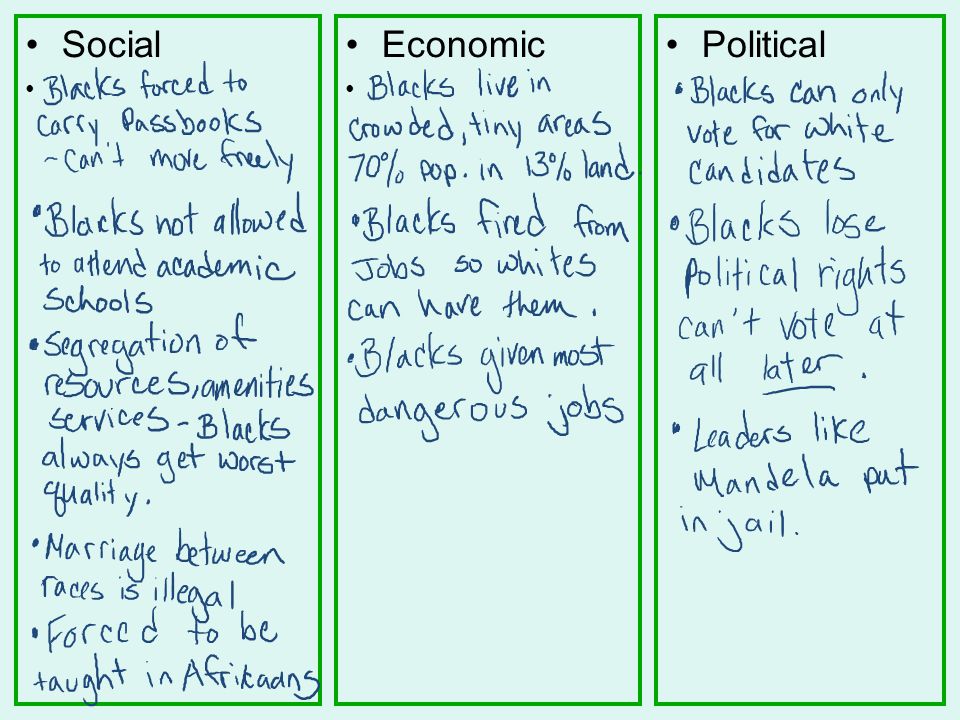 • Social
• Blacks forced to
carry Passbooks
~ Can't move freely
• Blacks not allowed
to attend academic
schools
• Segregation of
resources, amenities
services - Blacks
always get worst
quality.
• Marriage between
races is illegal
• Forced to be
taught in Afrikaans
• Economic
• Blacks live in
crowded, tiny areas
70% pop. in 13% land
• Blacks fired from
Jobs so whites
can have them.
• Blacks given most
dangerous jobs
• Political
• Blacks can only
vote for white
candidates
• Blacks lose
political rights
can't vote at
all later.
• Leaders like
Mandela put
in jail.